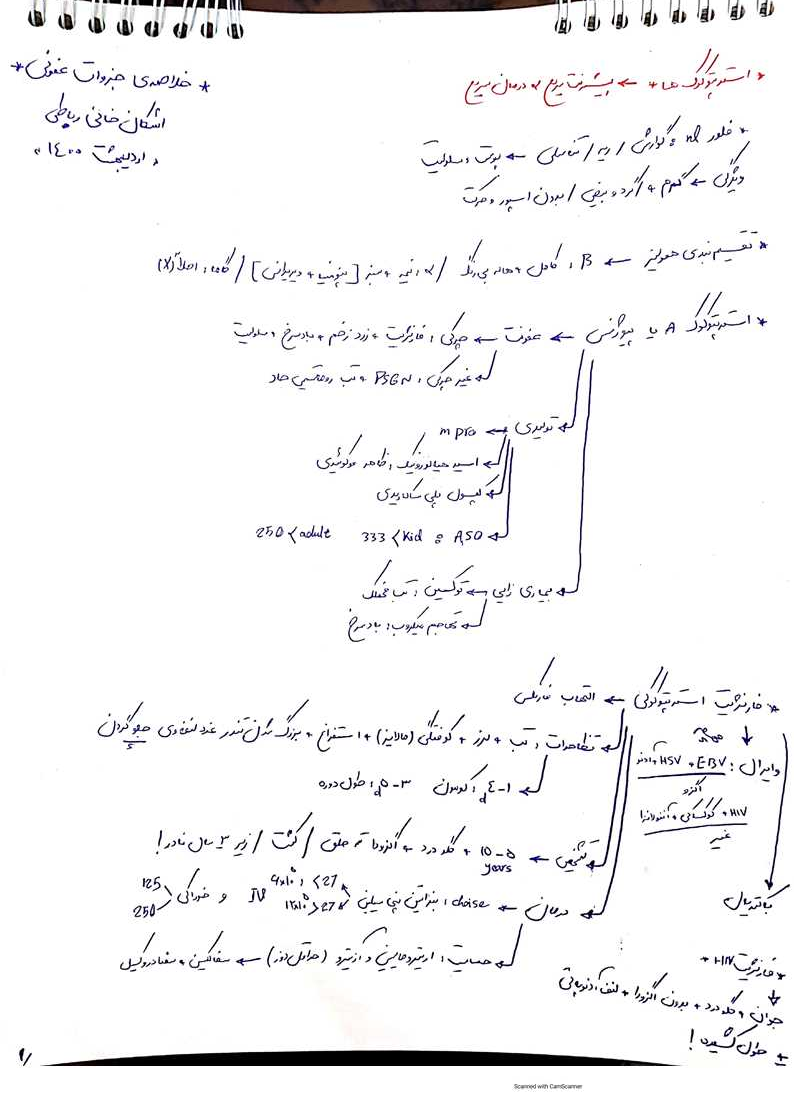 * خلاصه‌ی جزوات عفونی *
اشکان خانی رباطی
، اردیبهشت ۱٤۰۰ ،
* استرپتوکوک ها ← پیشرفت سریع و درمان سریع
* فلور nl : گوارش / ریه / تناسلی ← پوست و سلولیت
ویژگی ← گرم + / گرد و بیضی / بدون اسپور و حرکت
* تقسیم بندی همولیز ← B : کامل + هاله بی رنگ / α : نیمه + سبز [پنومونیه + ویریدانس] / گاما : اصلاً (X)
* استرپتوکوک A یا پیوژنس ← عفونت ← چرکی : فارنژیت + زرد زخم + بادسرخ + سلولیت
غیر چرکی : PSGN + تب روماتیسمی حاد
تولیدی ← m pro
اسید هیالورونیک : ظاهر موکوئیدی
کپسول پلی ساکاریدی
ASO : Kid > 333 adult > 250
بیماری زایی ← توکسین : تب مخملک
تهاجم میکروب : بادسرخ
* فارنژیت استرپتوکوکی ← التهاب فارنکس
تظاهرات : تب + لرز + کوفتگی (مالایز) + استفراغ + بزرگ شدن تندر غدد لنفاوی جلو گردن
۱-٤ d : کمون ۳-٥ d : طول دوره
تشخیص ← ٥-1٥ years + گلودرد + اگزودا ته حلق / کشت / زیر ۳ سال نادر !
درمان ← choise : بنزاتین پنی سیلین 27> : 27< و خوراکی 125 250
حساسیت : اریترومایسین و آزیترو (حداقل ٥ روز) ← سفالکسین + سفادروکسیل
وایرال : EBV + HSV + آدنو
اگزو
HIV + کوکساکی + آنفولانزا
غیر
باکتریال
* فارنژیت HIV *
جوان + گلودرد + بدون اگزودا + لنف آدنوپاتی
+ طول کشیده !
۱/
Scanned with CamScanner